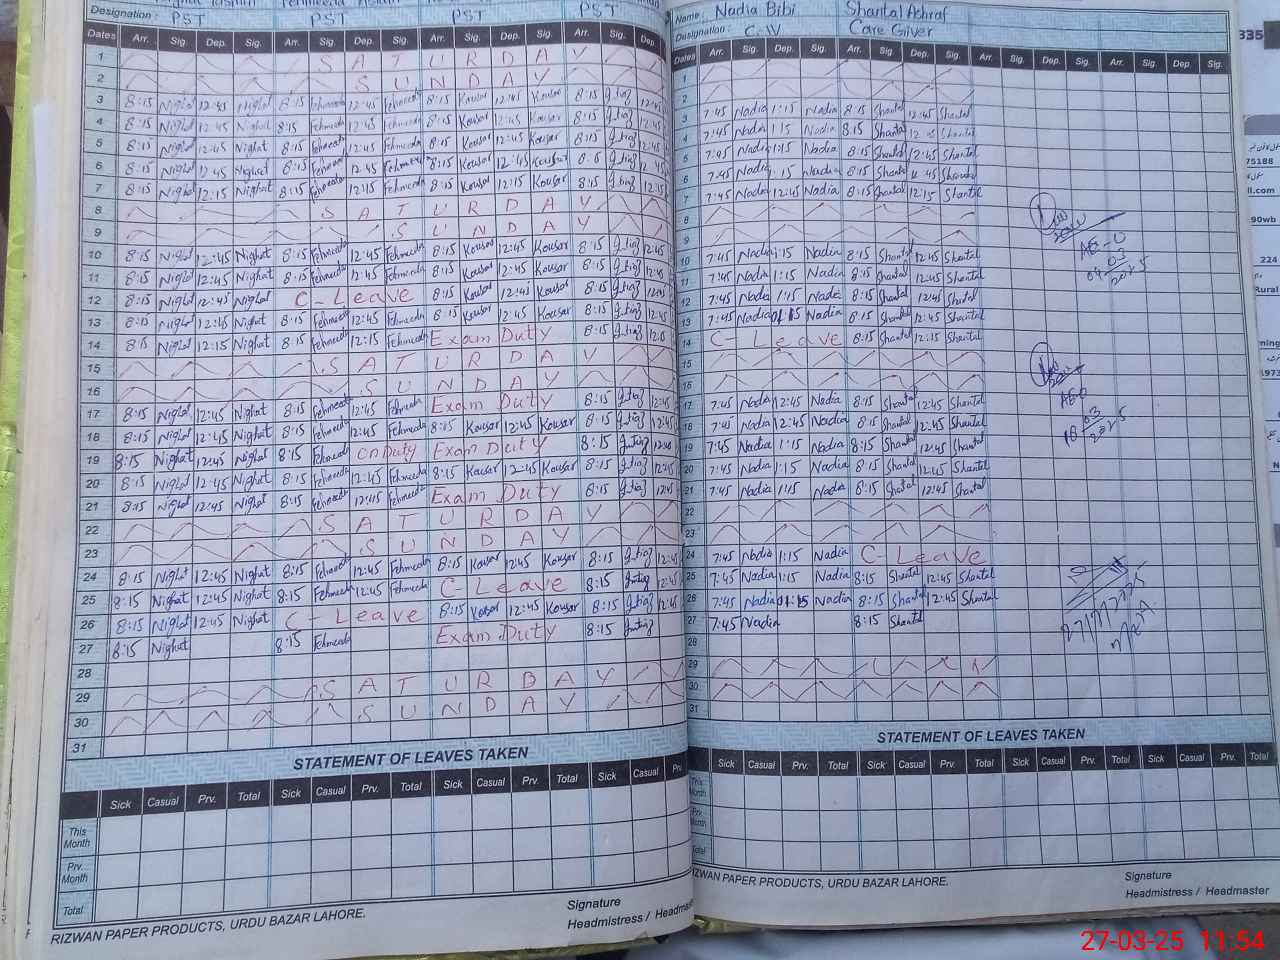 Designation: PST PST PST PST
Dates Arr. Sig. Dep. Sig. Arr. Sig. Dep. Sig. Arr. Sig. Dep. Sig. Arr. Sig. Dep.
1 SATURDAY
2 SUNDAY
3 8:15 Nighat 12:45 Nighat 8:15 Fehmeeda 12:45 Fehmeeda 8:15 Kousar 12:45 Kousar 8:15 12:45
4 8:15 Nighat 12:45 Nighat 8:15 Fehmeeda 12:45 Fehmeeda 8:15 Kousar 12:45 Kousar 8:15 12:45
5 8:15 Nighat 12:45 Nighat 8:15 Fehmeeda 12:45 Fehmeeda 8:15 Kousar 12:45 Kousar 8:15 12:45
6 8:15 Nighat 12:45 Nighat 8:15 Fehmeeda 12:45 Fehmeeda 8:15 Kousar 12:45 Kousar 8:15 12:45
7 8:15 Nighat 12:15 Nighat 8:15 Fehmeeda 12:15 Fehmeeda 8:15 Kousar 12:15 Kousar 8:15 12:15
8 SATURDAY
9 SUNDAY
10 8:15 Nighat 12:45 Nighat 8:15 Fehmeeda 12:45 Fehmeeda 8:15 Kousar 12:45 Kousar 8:15 12:45
11 8:15 Nighat 12:45 Nighat 8:15 Fehmeeda 12:45 Fehmeeda 8:15 Kousar 12:45 Kousar 8:15 12:45
12 8:15 Nighat 12:45 Nighat C-Leave 8:15 Kousar 12:45 Kousar 8:15 12:45
13 8:15 Nighat 12:45 Nighat 8:15 Fehmeeda 12:45 Fehmeeda 8:15 Kousar 12:45 Kousar 8:15 12:45
14 8:15 Nighat 12:15 Nighat 8:15 Fehmeeda 12:15 Fehmeeda Exam Duty 8:15 12:15
15 SATURDAY
16 SUNDAY
17 8:15 Nighat 12:45 Nighat 8:15 Fehmeeda 12:45 Fehmeeda Exam Duty 8:15 12:45
18 8:15 Nighat 12:45 Nighat 8:15 Fehmeeda 12:45 Fehmeeda 8:15 Kousar 12:45 Kousar 8:15 12:45
19 8:15 Nighat 12:45 Nighat 8:15 Fehmeeda on Duty Exam Duty 8:15 12:45
20 8:15 Nighat 12:45 Nighat 8:15 Fehmeeda 12:45 Fehmeeda 8:15 Kousar 12:45 Kousar 8:15 12:45
21 8:15 Nighat 12:45 Nighat 8:15 Fehmeeda 12:45 Fehmeeda Exam Duty 8:15 12:45
22 SATURDAY
23 SUNDAY
24 8:15 Nighat 12:45 Nighat 8:15 Fehmeeda 12:45 Fehmeeda 8:15 Kousar 12:45 Kousar 8:15 12:45
25 8:15 Nighat 12:45 Nighat 8:15 Fehmeeda 12:45 Fehmeeda C-Leave 8:15 12:45
26 8:15 Nighat 12:45 Nighat C-Leave 8:15 Kousar 12:45 Kousar 8:15 12:45
27 8:15 Nighat 8:15 Fehmeeda Exam Duty 8:15
28
29 SATURDAY
30 SUNDAY
31
STATEMENT OF LEAVES TAKEN
Sick Casual Prv. Total Sick Casual Prv. Total Sick Casual Prv. Total Sick Casual
This Month
Prv. Month
Total
RIZWAN PAPER PRODUCTS, URDU BAZAR LAHORE.
Signature
Headmistress / Headmaster
Name: Nadia Bibi Shantal Ashraf
Designation: C.W Care Giver
Dates Arr. Sig. Dep. Sig. Arr. Sig. Dep. Sig. Arr. Sig. Dep. Sig. Arr. Sig. Dep. Sig.
1
2
3 7:45 Nadia 1:15 Nadia 8:15 Shantal 12:45 Shantal
4 7:45 Nadia 1:15 Nadia 8:15 Shantal 12:45 Shantal
5 7:45 Nadia 1:15 Nadia 8:15 Shantal 12:45 Shantal
6 7:45 Nadia 1:15 Nadia 8:15 Shantal 12:45 Shantal
7 7:45 Nadia 12:45 Nadia 8:15 Shantal 12:15 Shantal
8
9
10 7:45 Nadia 1:15 Nadia 8:15 Shantal 12:45 Shantal
11 7:45 Nadia 1:15 Nadia 8:15 Shantal 12:45 Shantal
12 7:45 Nadia 1:15 Nadia 8:15 Shantal 12:45 Shantal
13 7:45 Nadia 01:15 Nadia 8:15 Shantal 12:45 Shantal
14 C-Leave 8:15 Shantal 12:15 Shantal
15
16
17 7:45 Nadia 12:45 Nadia 8:15 Shantal 12:45 Shantal
18 7:45 Nadia 12:45 Nadia 8:15 Shantal 12:45 Shantal
19 7:45 Nadia 1:15 Nadia 8:15 Shantal 12:45 Shantal
20 7:45 Nadia 1:15 Nadia 8:15 Shantal 12:45 Shantal
21 7:45 Nadia 1:15 Nadia 8:15 Shantal 12:45 Shantal
22
23
24 7:45 Nadia 1:15 Nadia C-Leave
25 7:45 Nadia 1:15 Nadia 8:15 Shantal 12:45 Shantal
26 7:45 Nadia 01:15 Nadia 8:15 Shantal 12:45 Shantal
27 7:45 Nadia 8:15 Shantal
28
29
30
31
STATEMENT OF LEAVES TAKEN
Sick Casual Prv. Total Sick Casual Prv. Total Sick Casual Prv. Total Sick Casual Prv. Total
This Month
Prv. Month
Total
RIZWAN PAPER PRODUCTS, URDU BAZAR LAHORE.
Signature
Headmistress / Headmaster
335
75188
224
27-03-25 11:54